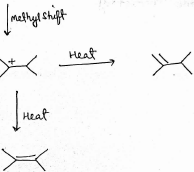 methyl shift
+
Heat
Heat